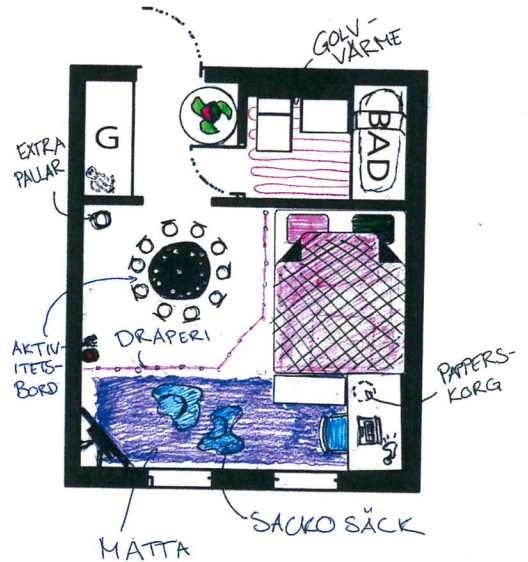 GOLV-
VÄRME
EXTRA
PALLAR
G
BAD
AKTIV-
ITETS-
BORD
DRAPERI
PAPPERS-
KORG
SACKO SÄCK
MATTA